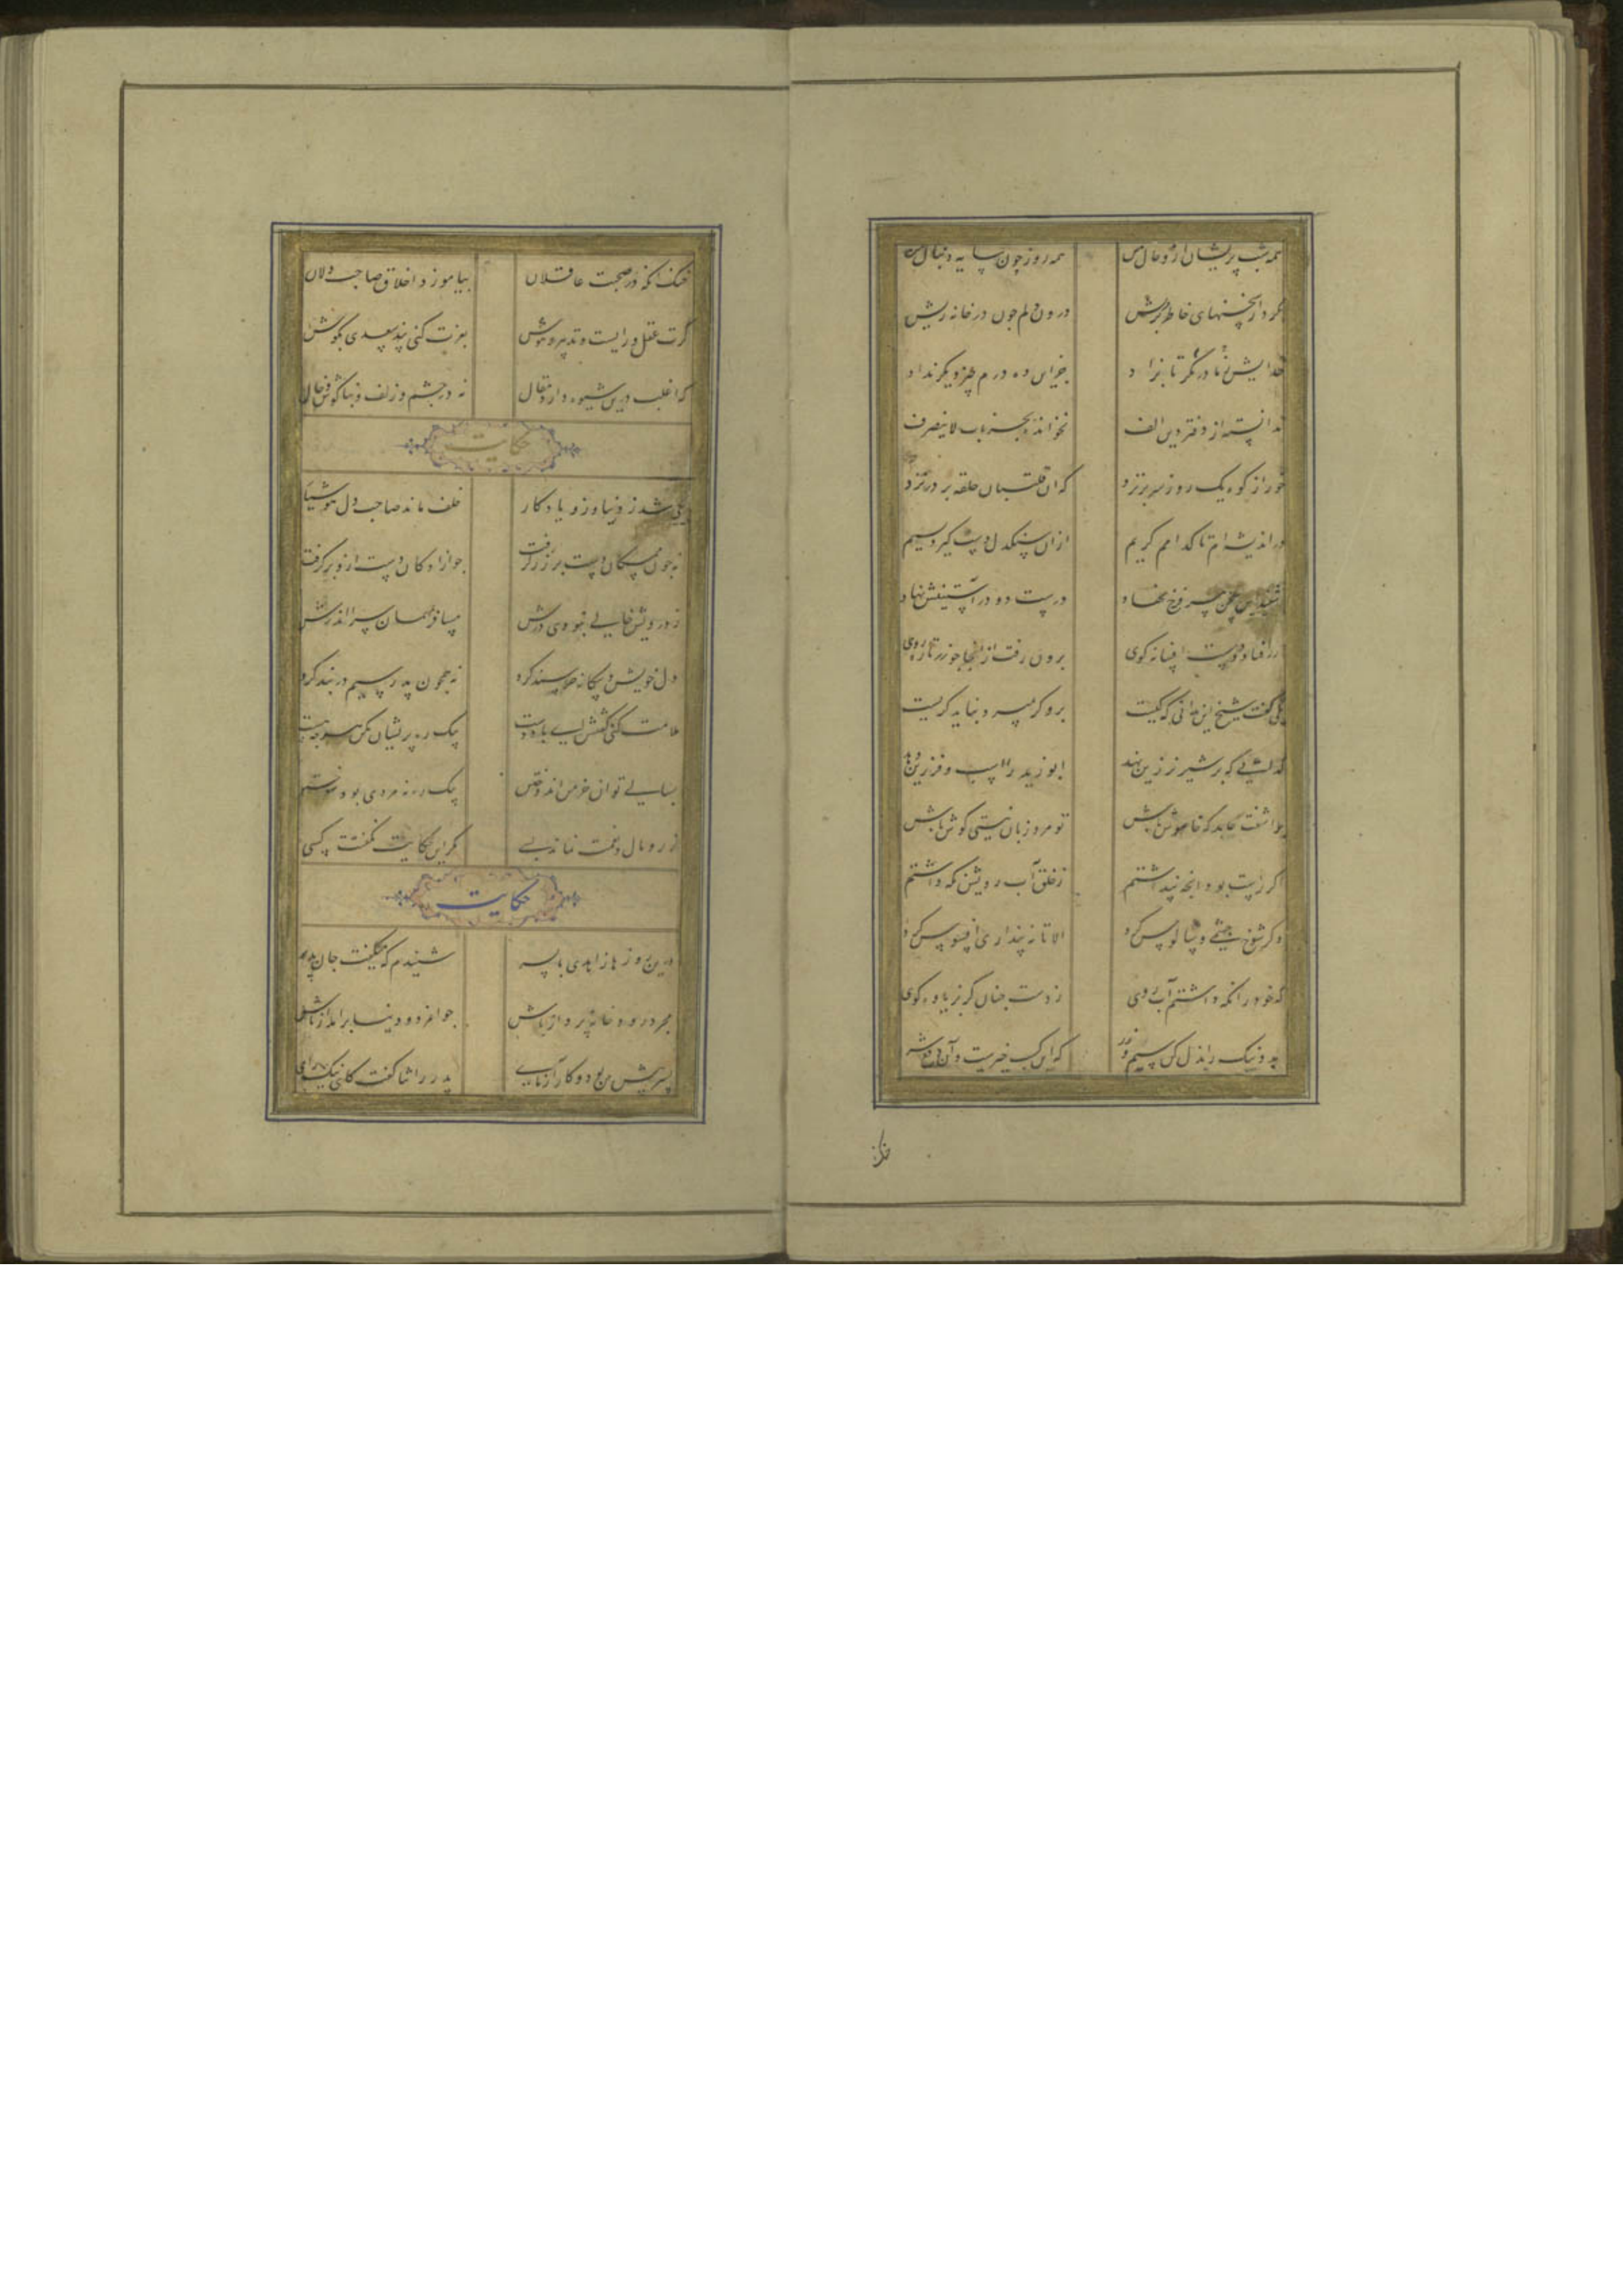 همه شب پریشان ازو حال من همه روز چون سایه دنبال من
بکرد از سخنهای خاطر پریش درون دلم چون در خانه ریش
خدایش مکر تا ز مادر بزاد جز این ده درم چیز دیکر نداد
ندانسته از دفتر دین الف نخوانده بجز باب لاینصرف
خور از کوه یک روز سر بر نزد که آن قلتبان حلقه بر در نزد
در اندیشه ام تا کدامم کریم ازان سنکدل دست کیرد بسیم
شنید این سخن پیر فرخ نهاد درست دو در آستینش نهاد
زر افتاد در دست افسانه کوی برون رفت از آنجا چو زر تازه روی
یکی کفت شیخ این ندانی که کیست برو کر بمیرد نباید کریست
کدایی که بر شیر نر زین نهد ابو زید را اسب و فرزین دهد
بر آشفت عابد که خاموش باش تو مرد زبان نیستی کوش باش
اکر راست بود آنچه پنداشتم ز خلق آب رویش نکه داشتم
وکر شوخ چشمی و سالوس کرد الا تا نپنداری افسوس کرد
که خود را نکه داشتم آب روی ز دست چنان کربزی یاوه کوی
بد و نیک را بذل کن سیم و زر که این کسب خیرست و آن دفع شر
خنک آنکه در صحبت عاقلان بیاموزد اخلاق صاحب دلان
کرت عقل و رایست و تدبیر و هوش بعزت کنی پند سعدی بکوش
که اغلب درین شیوه دارد مقال نه در چشم و زلف و بناکوش و خال
حکایت
یکی شد ز دنیا وزو یادکار خلف ماند صاحب دل هوشیار
نه چون ممسکان دست بر زر کرفت چو آزادکان دست ازو بر کرفت
ز درویش خالی نبودی درش مسافر بمهمان سرا اندرش
دل خویش و بیکانه خرسند کرد نه همچون پدر سیم در بند کرد
ملامت کنی کفتش ای باد دست بیک ره پریشان مکن هر چه هست
بسالی توان خرمن اندوختن بیک دم نه مردی بود سوختن
زر و مال و نعمت نماند بسی مکر این حکایت نکفتت کسی
حکایت
درین روزها زاهدی با پسر شنیدم که میکفت جان پدر
مجرد رو و خانه پرداز باش جوانمرد و دنیا برانداز باش
پسر پیش بین بود و کار آزمای پدر را ثنا کفت کای نیک رای
خنک